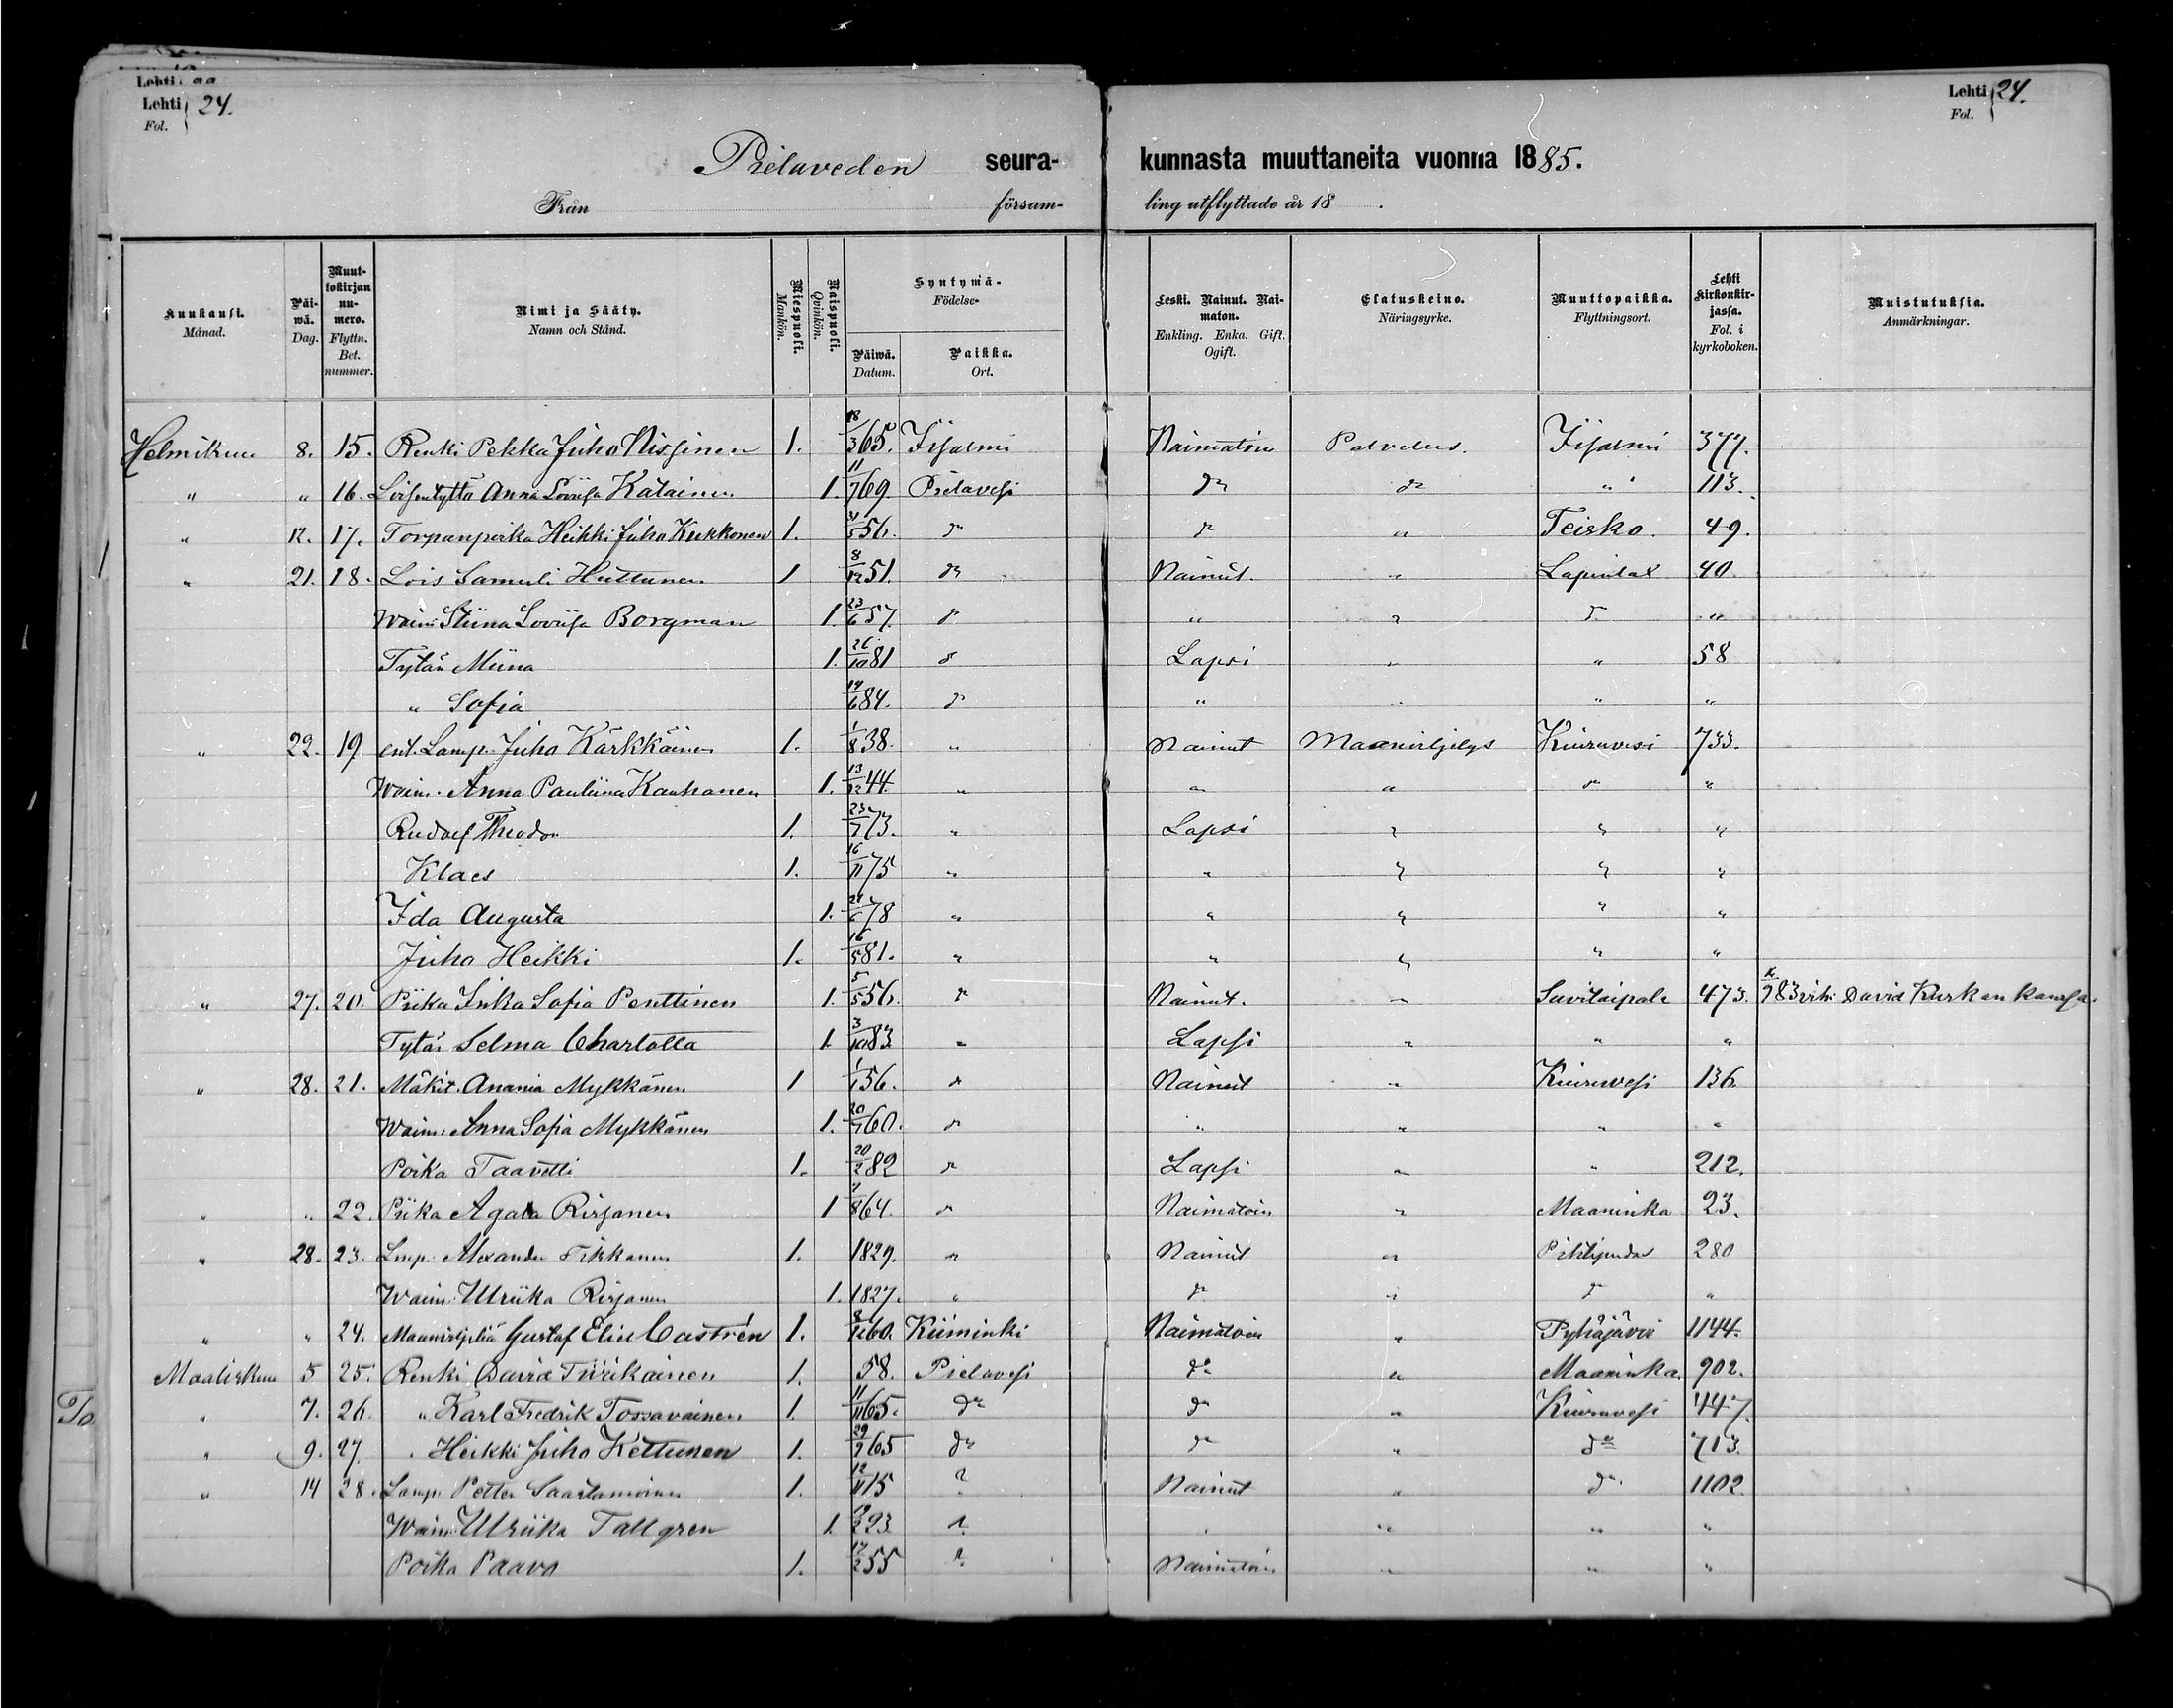 Lehti 24. Lehti 24.
Fol. Fol.
Pielaveden seura- kunnasta muuttaneita vuonna 1885.
Från försam- ling utflyttade år 18 .
Kuukausi. Månad. Päiwä. Dag. Muuttokirjan numero. Flyttn. Bet. nummer. Nimi ja Sääty. Namn och Stånd. Miespuoli. Mankön. Naispuoli. Qvinkön. Syntymä- Födelse- Päiwä. Datum. Paikka. Ort. Leski. Nainut. Naimaton. Enkling. Enka. Gift. Ogift. Elatuskeino. Näringsyrke. Muuttopaikka. Flyttningsort. Lehti kirkonkirjassa. Fol. i kyrkoboken. Muistutuksia. Anmärkningar.
Helmikuu 8. 15. Renki Pekka Juho Nissinen 1. 18/3 65. Iisalmi Naimatoin Palvelus. Iisalmi 377.
" " 16. Loisentyttö Anna Loviisa Katainen 1. 11/7 69. Pielavesi do do " 113.
" 12. 17. Torpanpoika Heikki Juho Kukkonen 1. 31/5 56. do do " Teisko. 49.
" 21. 18. Lois Samuli Huttunen 1 8/12 51. do Nainut. " Lapinlax 40.
Waim. Stiina Loviisa Borgman 1. 23/6 57. do " " do "
Tytär Miina 1. 26/10 81 do Lapsi " " 58
" Sofia 14/6 84. do " " " "
" 22. 19 ent. Lamp. Juho Kärkkäinen 1. 1/8 38. " Nainut Maanviljelys Kiuruvesi 733.
Waim. Anna Pauliina Kauhanen 1. 13/12 44. " " " do "
Rudolf Theodor 1. 23/7 73. " Lapsi " " "
Klaes 1. 16/11 75 " " " " "
Ida Augusta 1. 21/6 78 " " " " "
Juho Heikki 1. 16/5 81. " " " " "
" 27. 20. Piika Inka Sofia Penttinen 1. 5/5 56. do Nainut. " Savitaipale 473. 83 vih. David Kurkan kanssa.
Tytär Selma Charlotta 1. 3/10 83 " Lapsi " " "
" 28. 21. Mäkit. Anania Mykkänen 1 1/1 56. do Nainut " Kiuruvesi 136.
Waim. Anna Sofia Mykkänen 1. 20/7 60. do " " " "
Poika Taavetti 1. 20/2 82 do Lapsi " " 212.
" " 22. Piika Agata Risjanen 1 7/8 64. do Naimatoin " Maaninka 23.
" 28. 23. Lmp. Alexander Tikkanen 1. 1829. do Nainut " Pihtipudas 280
Waim. Ulriika Risjanen 1. 1827. " do " do "
" " 24. Maanviljeliä Gustaf Elis Castrén 1. 8/12 60. Kiiminki Naimatoin " Pyhäjärvi 1144.
Maaliskuu 5 25. Renki David Tiirikainen 1. 58. Pielavesi do " Maaninka. 902.
To " 7. 26. " Karl Fredrik Tossavainen 1. 11/11 65. do do " Kiuruvesi 447.
" 9. 27. " Heikki Juho Kettunen 1. 29/9 65 do do " do 713.
" 14 28. Lamp. Petter Saastamoinen 1. 12/11 15 do Nainut " do 1102.
Waim. Ulriika Tallgren 1. 19/2 23 do " " " "
Poika Paavo 1. 17/2 55 do Naimatoin " " "